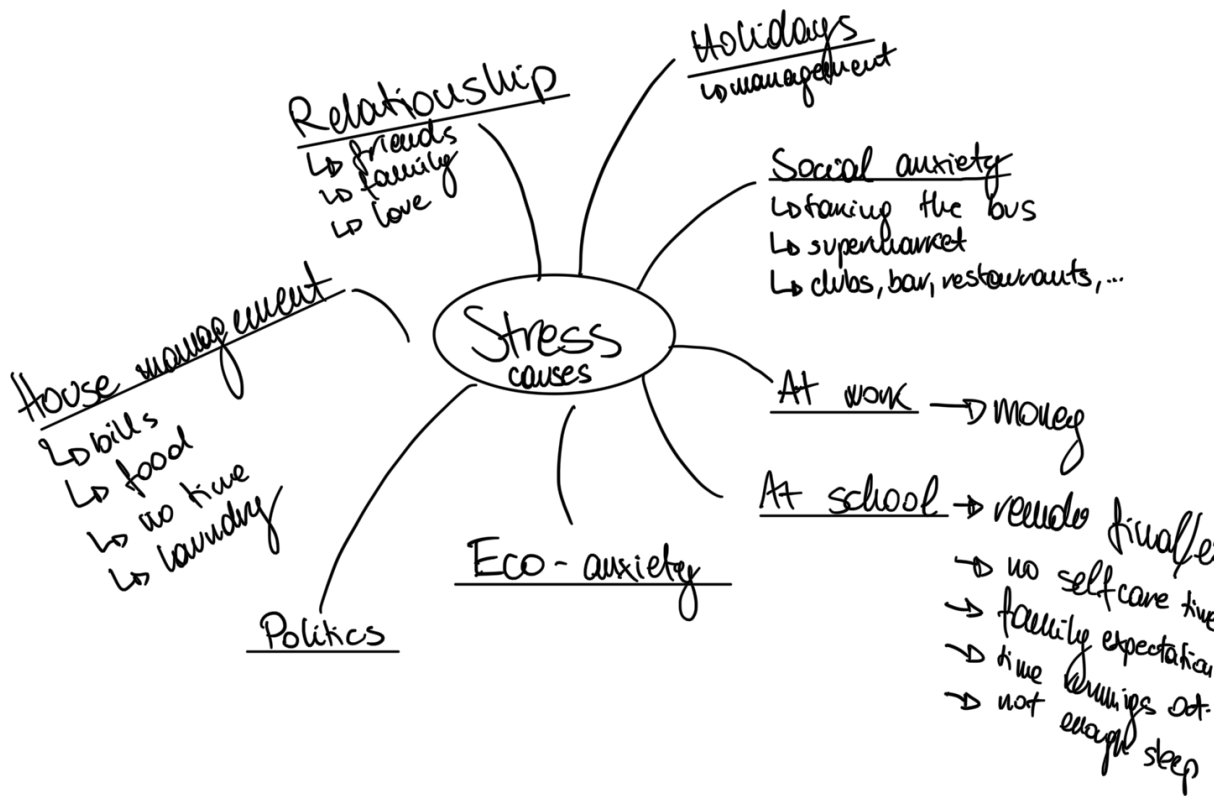 Holidays
↳ management
Relationship
↳ friends
↳ family
↳ love
Social anxiety
↳ taking the bus
↳ supermarket
↳ clubs, bar, restaurants, ...
Stress
causes
House management
↳ bills
↳ food
↳ no time
↳ laundry
At work → money
At school →
→ no selfcare time
→ family expectation
→ time
→ not enough sleep
Eco-anxiety
Politics